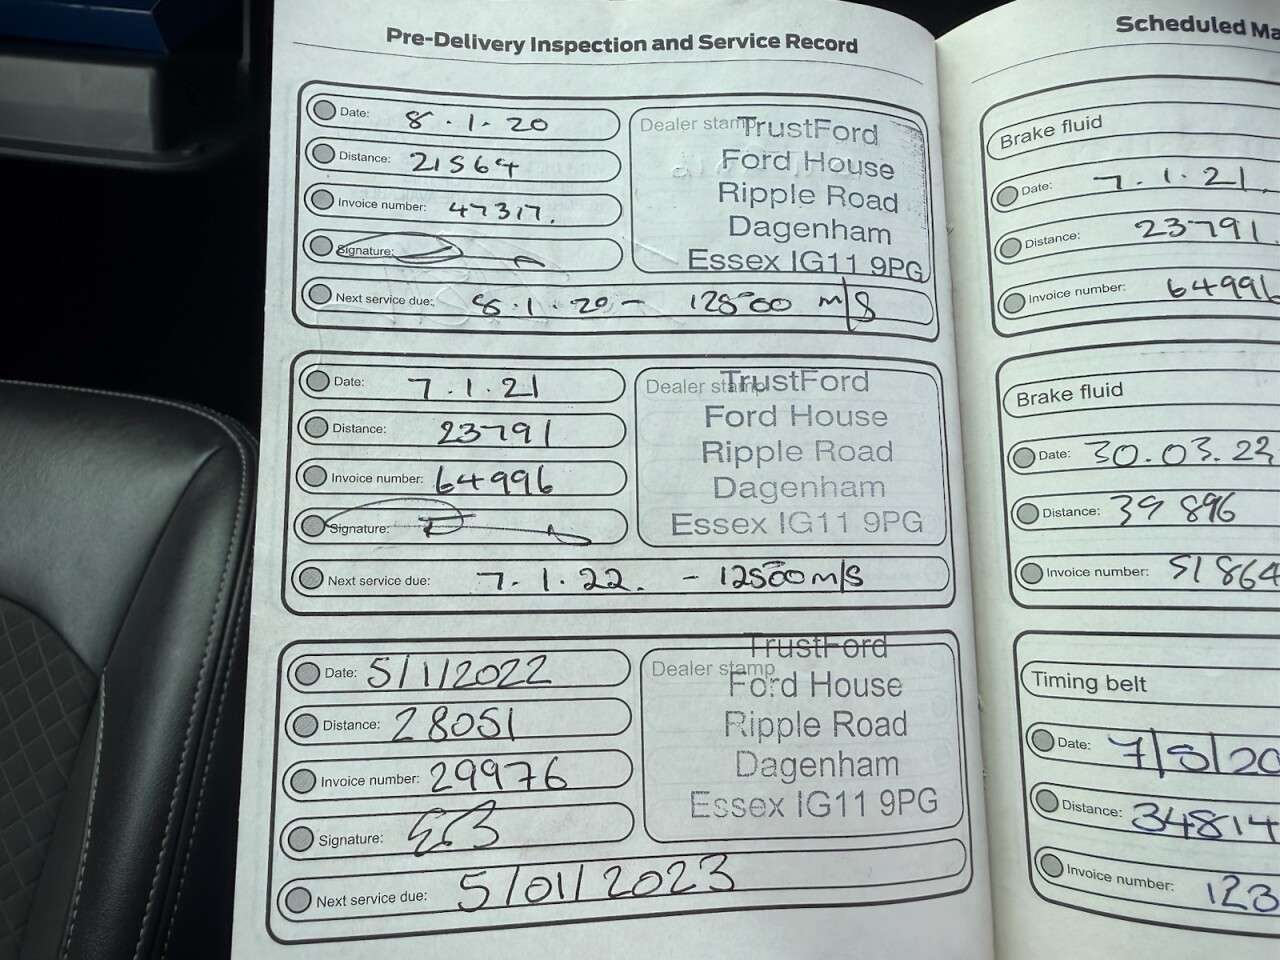 Pre-Delivery Inspection and Service Record
Date: 8.1.20
Distance: 21564
Invoice number: 47317.
Signature:
Next service due: 8.1.20 - 12500 m/s
Dealer stamp
TrustFord
Ford House
Ripple Road
Dagenham
Essex IG11 9PG
Date: 7.1.21
Distance: 23791
Invoice number: 64996
Signature:
Next service due: 7.1.22. - 12500 m/s
Dealer stamp
TrustFord
Ford House
Ripple Road
Dagenham
Essex IG11 9PG
Date: 5/1/2022
Distance: 28051
Invoice number: 29976
Signature:
Next service due: 5/01/2023
Dealer stamp
TrustFord
Ford House
Ripple Road
Dagenham
Essex IG11 9PG
Scheduled Ma
Brake fluid
Date: 7.1.21.
Distance: 23791.
Invoice number: 64996
Brake fluid
Date: 30.03.23
Distance: 39 896
Invoice number: 51864
Timing belt
Date:
Distance: 34814
Invoice number: 123